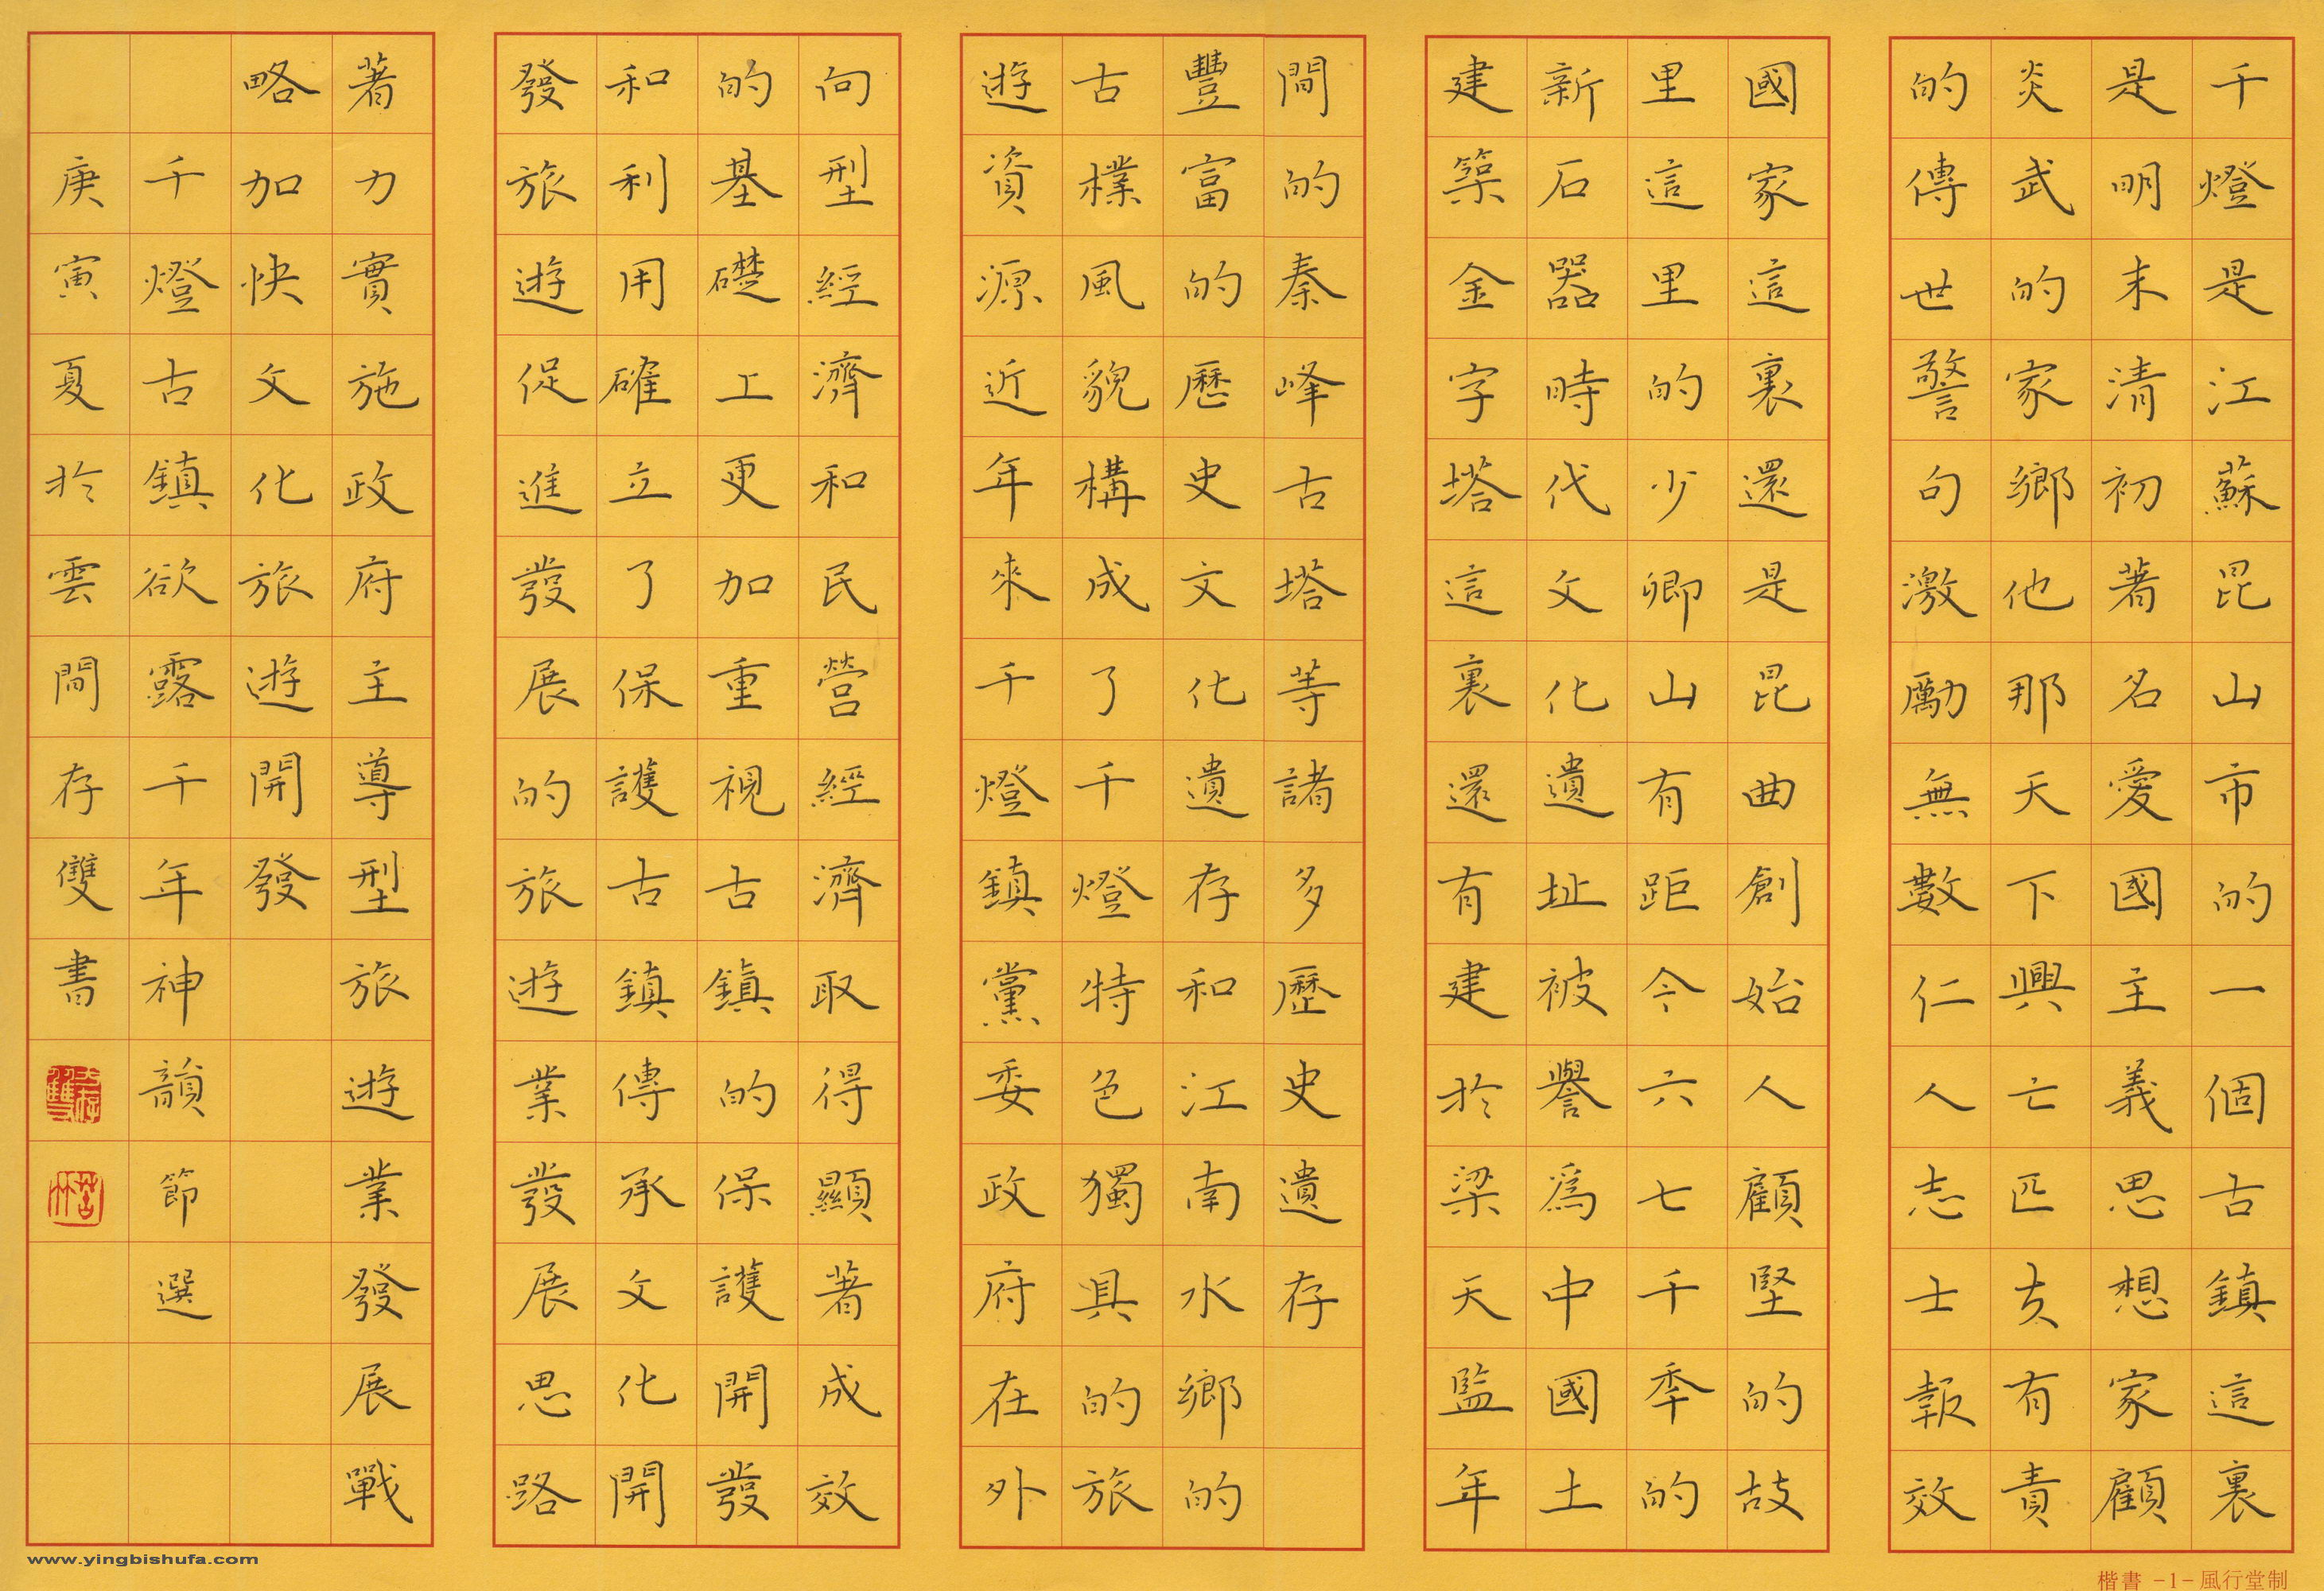 千燈是江蘇昆山市的一個古鎮這裏
是明末清初著名愛國主義思想家顧
炎武的家鄉他那天下興亡匹夫有責
的傳世警句激勵無數仁人志士報效
國家這裏還是昆曲創始人顧堅的故
里這里的少卿山有距今六七千秊的
新石器時代文化遺址被譽爲中國土
建築金字塔這裏還有建於梁天監年
間的秦峰古塔等諸多歷史遺存
豐富的歷史文化遺存和江南水鄉的
古樸風貌構成了千燈特色獨具的旅
遊資源近年來千燈鎮黨委政府在外
向型經濟和民營經濟取得顯著成效
的基礎上更加重視古鎮的保護開發
和利用確立了保護古鎮傳承文化開
發旅遊促進發展的旅遊業發展思路
著力實施政府主導型旅遊業發展戰
略加快文化旅遊開發
千燈古鎮欲露千年神韻節選
庚寅夏於雲間存雙書
www.yingbishufa.com
楷書 -1- 風行堂制